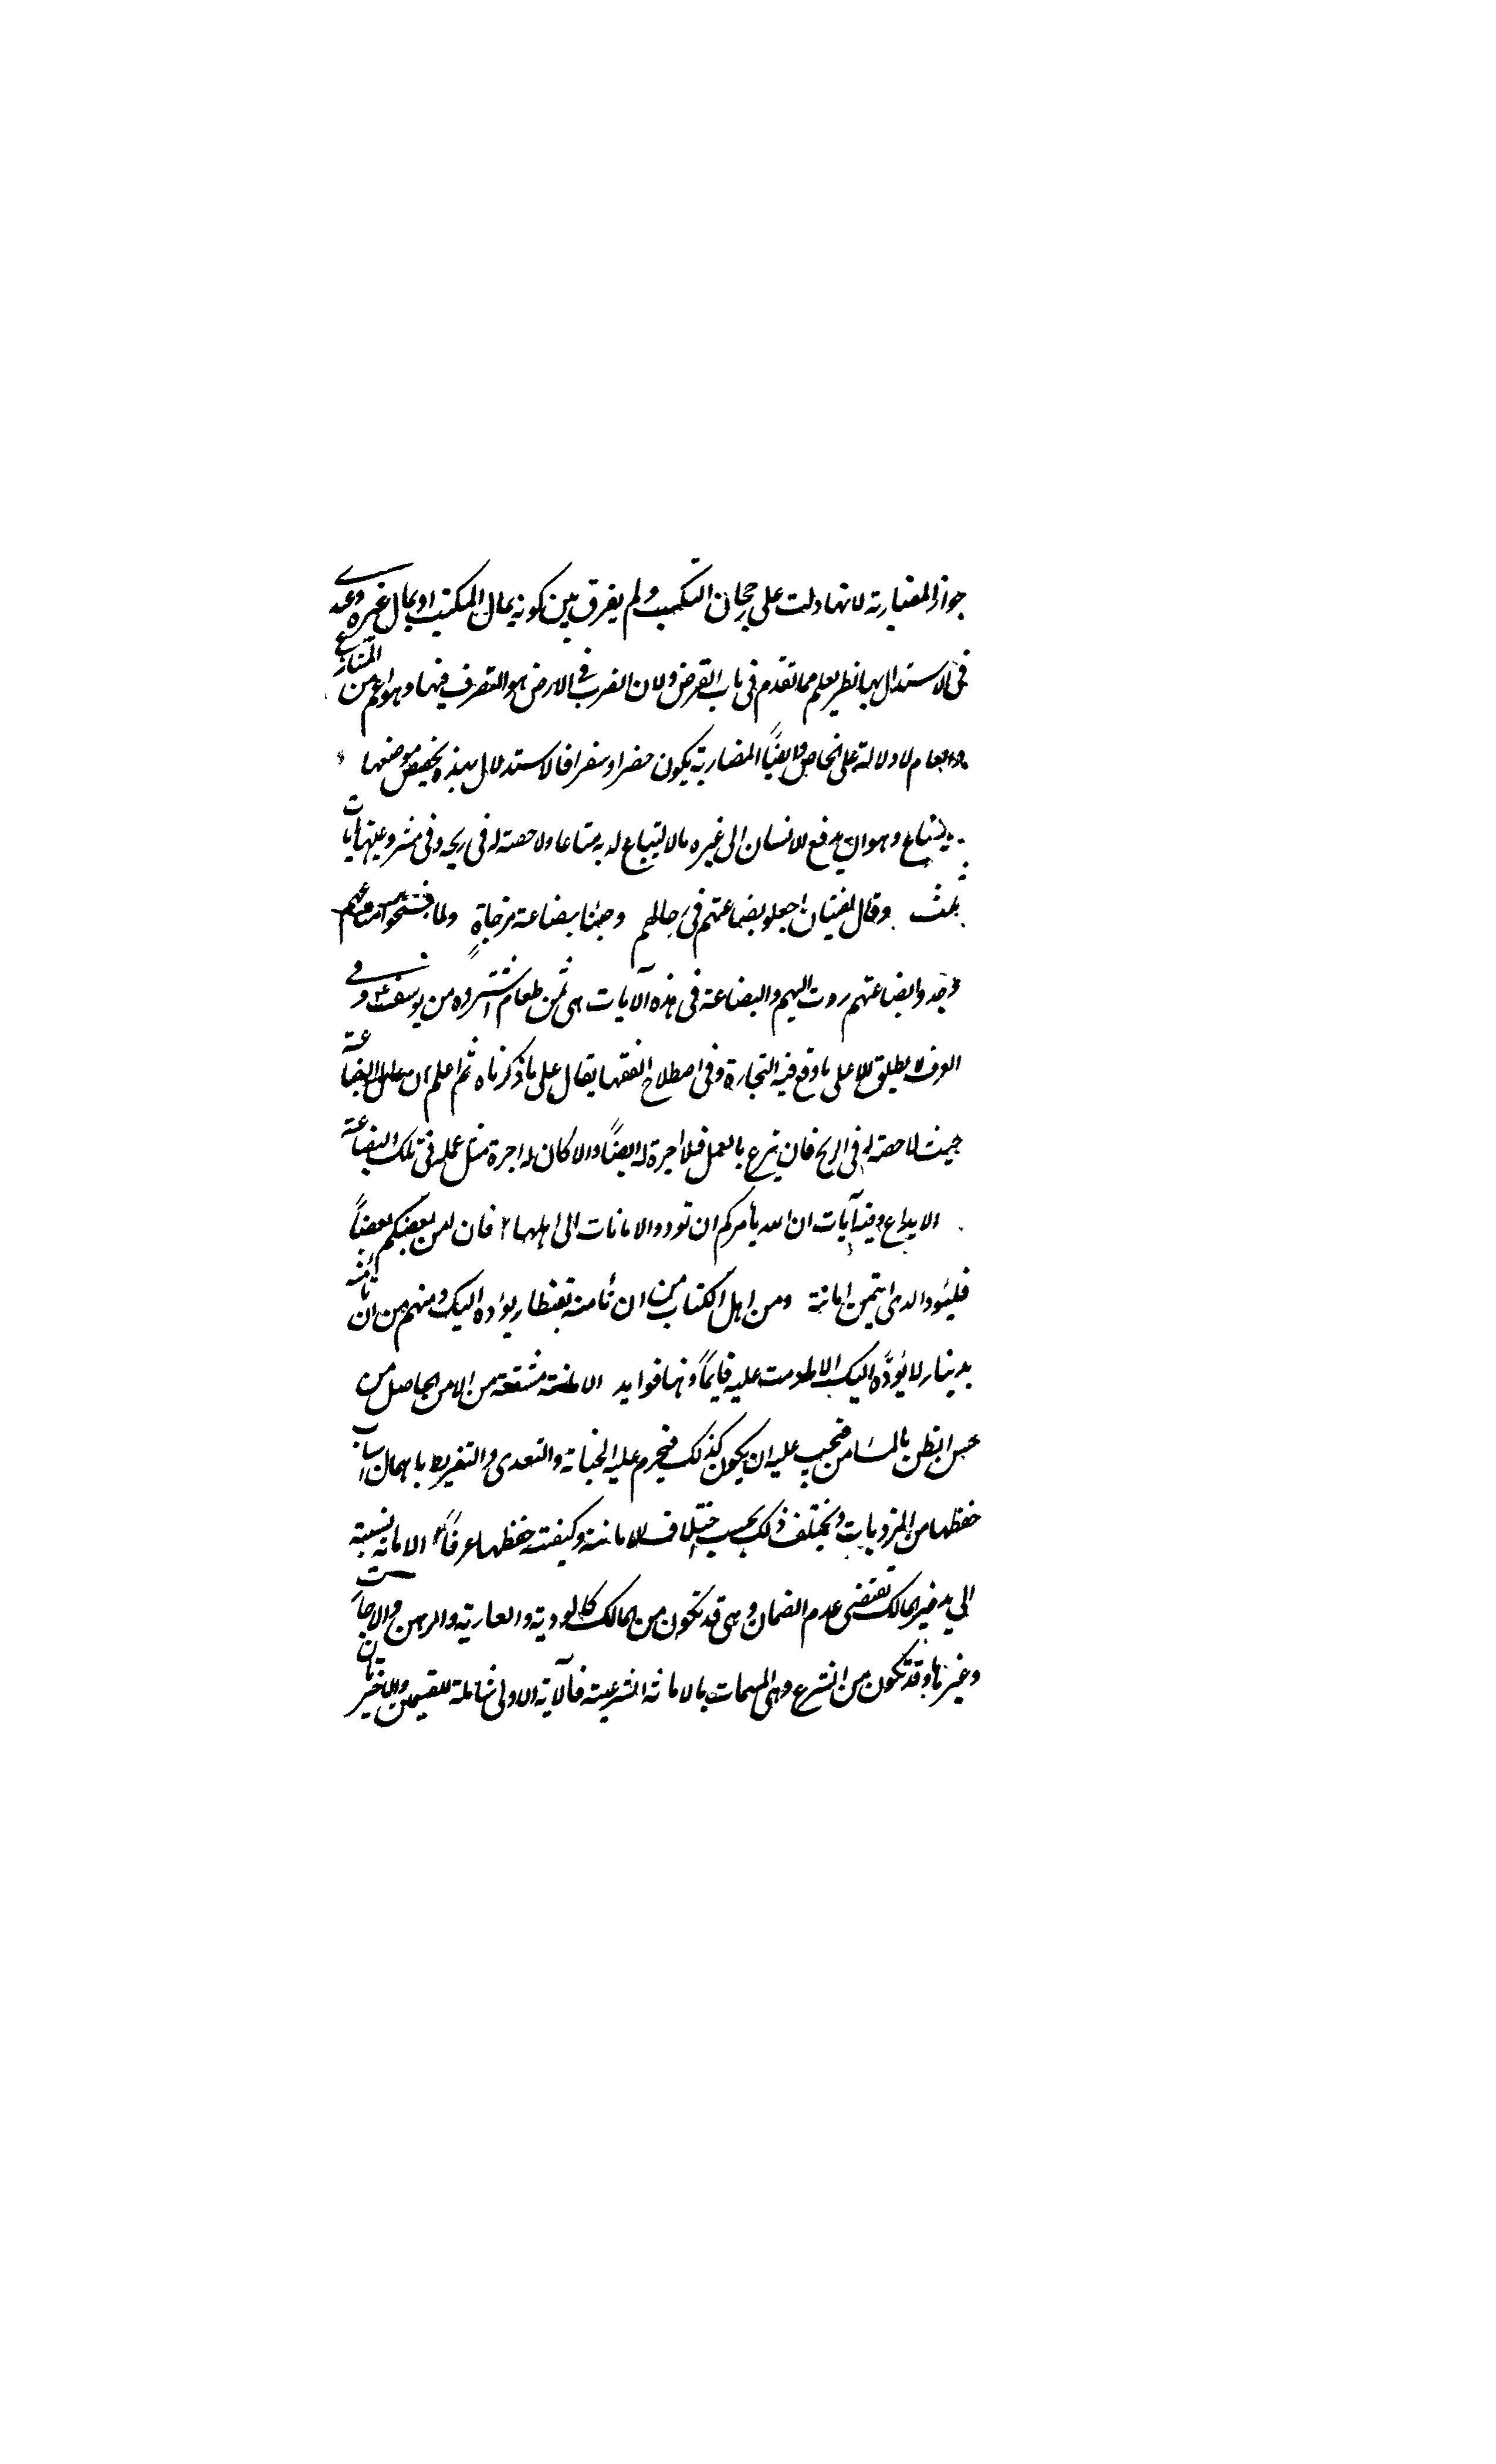 جواز المضاربة لانها دلت على رجحان التكسب ولم يفرق بين كونه بمال المكتسب او بمال غيره وعندى
فى الاستدلال بها نظر يعلم مما تقدم فى باب القرض ولان الضرب فى الارض هو التصرف فيها وهو اعم من المتنازع
والعام لا دلالة على الخاص وايضًا المضاربة يكون حضرا وسفرا فالاستدلال بهذه تخصيص موضعها
وهو ان يدفع الانسان الى غيره مالا ليبتاع له به متاعا ولا حصة له فى ربحه وفى مشروعيتها آيات
ثلث وقال لفتيان اجعلوا بضاعتهم فى رحالهم وجئنا ببضاعة مزجاةٍ ولما فتحوا متاعهم
وجدوا بضاعتهم ردت اليهم والبضاعة فى هذه الآيات هى ثمن طعام اشتروه من يوسف ع وفى
العرف لا يطلق الا على ما وقع فيه التجارة وفى اصطلاح الفقها يقال على ما ذكرناه ثم اعلم ان عامل البضاعة
حيث لا حصة له فى الربح فان تبرع بالعمل فلا اجرة له ايضًا والا كان له اجرة مثل عمله فى تلك البضاعة
الايداع وفيه آيات ان الله يامركم ان تودوا الامانات الى اهلها ۲ فان امن بعضكم بعضاً
فليؤد الذى ائتمن امانته ومن اهل الكتاب من ان تأمنه بقنطار يؤده اليك ومنهم من ان تأمنه
بدينار لا يؤدّه اليك الا ما دمت عليه قايماً وهنا فوايد الامانة مشتقة من الامن الحاصل من
حسن الظن بالمستامن فيجب عليه ان يكون كذلك فيحرم عليه الخيانة والتعدى والتفريط باهمال اسباب
حفظها من المرديات ويختلف ذلك بحسب اختلاف الامانة وكيفية حفظها عرفاً ۲ الامانة بنسبة
الى يد غير المالك تقتضى عدم الضمان وهى قد تكون من المالك كالوديعة والعارية والرهن والاجارت
وغيرها وقد تكون من الشرع وهى المسمات بالامانة الشرعية فالآية الاولى شاملة للقسمين والاخيرتان